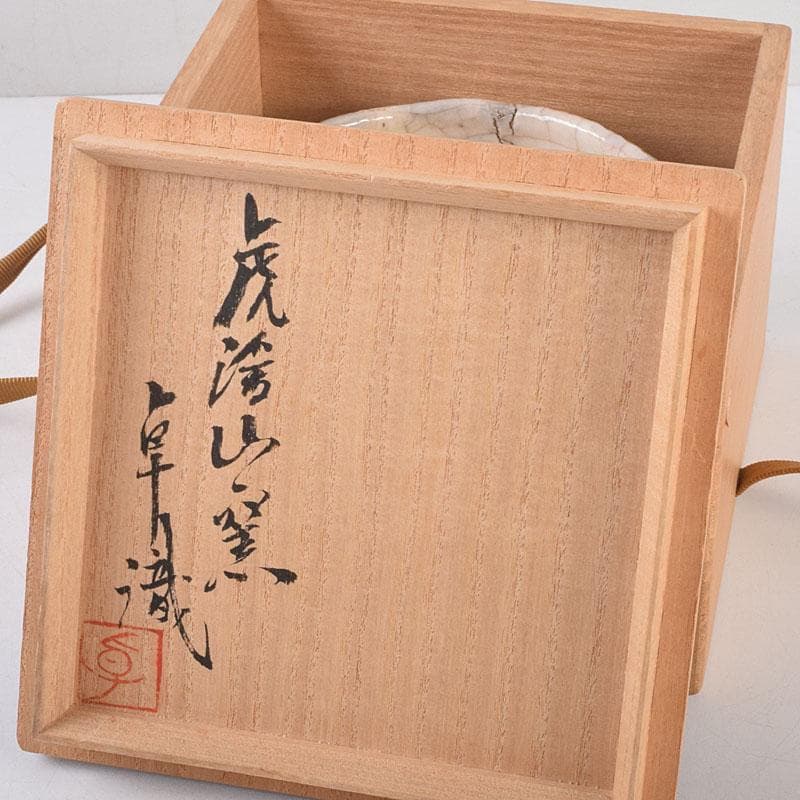 虎渓山窯
卓識